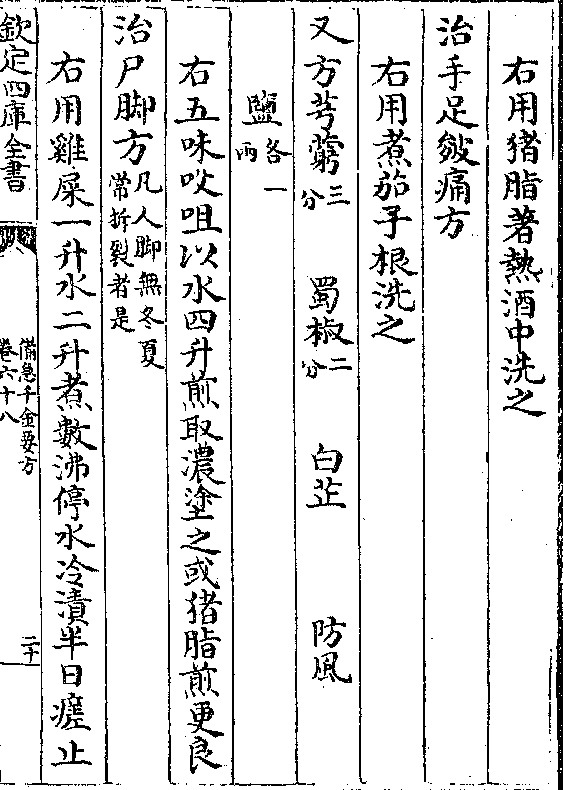 右用猪脂著熱酒中洗之
治手足皴痛方
右用煮茄子根洗之
又方芎藭三分 蜀椒二分 白芷 防風
鹽各一兩
右五味㕮咀以水四升煎取濃塗之或猪脂煎更良
治尸脚方凡人脚無冬夏常拆裂者是
右用雞屎一升水二升煮數沸停水冷漬半日瘥止
欽定四庫全書
備急千金要方
卷六十八
二十